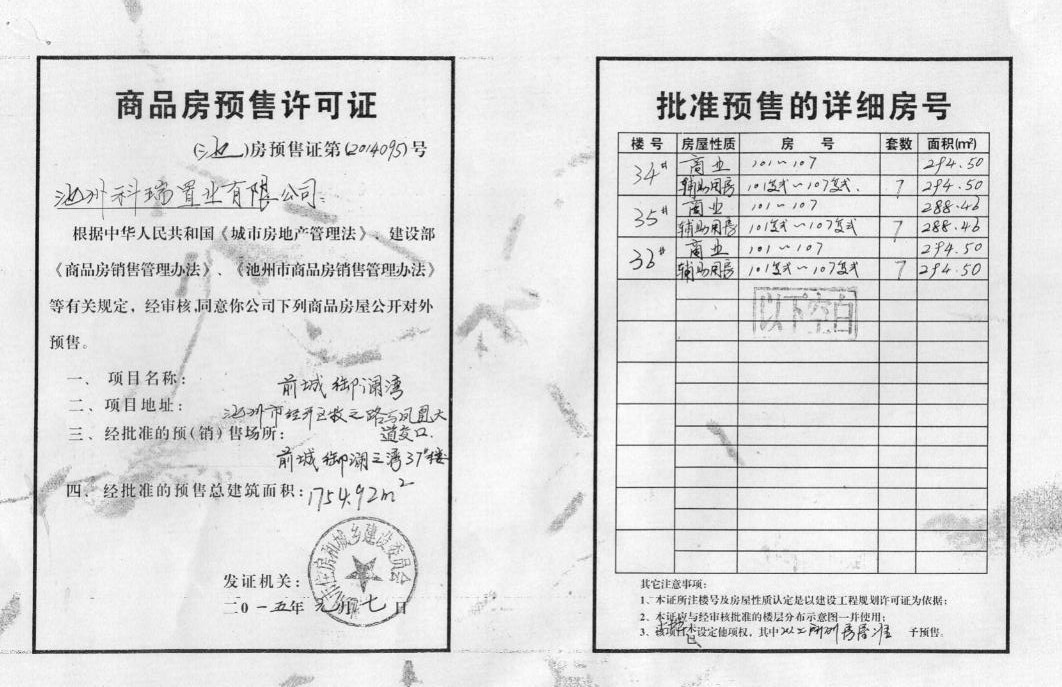 商品房预售许可证
(池)房预售证第(2014095)号
池州科瑞置业有限公司:
根据中华人民共和国《城市房地产管理法》、建设部
《商品房销售管理办法》、《池州市商品房销售管理办法》
等有关规定，经审核,同意你公司下列商品房屋公开对外
预售。
一、项目名称: 前城御澜湾
二、项目地址: 池州市经开区牧之路与凤凰大道交口.
三、经批准的预(销)售场所:
前城御澜湾37#楼
四、经批准的预售总建筑面积: 1754.92m²
住房和城乡建设委员会
发证机关:
二0一五年元月七日
批准预售的详细房号
楼号 房屋性质 房号 套数 面积(m²)
34# 商业 101~107 294.50
辅助用房 101复式~107复式. 7 294.50
35# 商业 101~107 288.46
辅助用房 101复式~107复式 7 288.46
36# 商业 101~107 294.50
辅助用房 101复式~107复式 7 294.50
以下空白
其它注意事项:
1、本证所注楼号及房屋性质认定是以建设工程规划许可证为依据;
2、本证应与经审核批准的楼层分布示意图一并使用;
3、该项目未设定他项权，其中以上所列房屋准予预售。